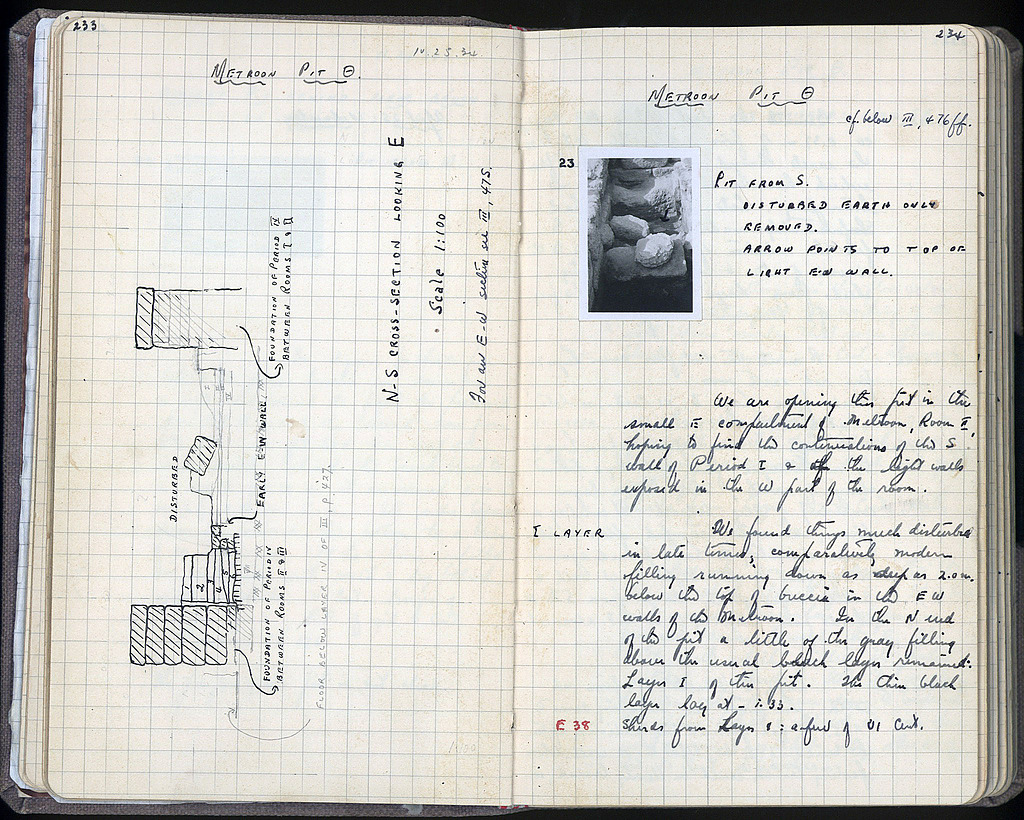 233
10.25.34
METROON PIT Θ.
N-S CROSS-SECTION LOOKING E
Scale 1:100
For an E-W section see III, 475.
FOUNDATION OF PERIOD IV
BETWEEN ROOMS I & II
DISTURBED
EARLY E-W WALL
FOUNDATION OF PERIOD IV
BETWEEN ROOMS II & III
FLOOR BELOW LAYER IV OF III, p. 427.
2
3
4
5
234
METROON PIT Θ
cf. below III, 476ff.
23
PIT FROM S.
DISTURBED EARTH ONLY
REMOVED.
ARROW POINTS TO TOP OF
LIGHT E-W WALL.
We are opening this pit in the
small E compartment of Metroon, Room II,
hoping to find the continuations of the S
wall of Period I & of the light walls
exposed in the W part of the room.
I LAYER
We found things much disturbed
in late times, comparatively modern
filling running down as deep as 2.0 m.
below the top of breccia in the EW
walls of the Metroon. In the N end
of the pit a little of the gray filling
above the usual black layer remained:
Layer I of this pit. The thin black
layer lay at - 1.33.
E 38
Sherds from Layer 1: a few of VI Cent.